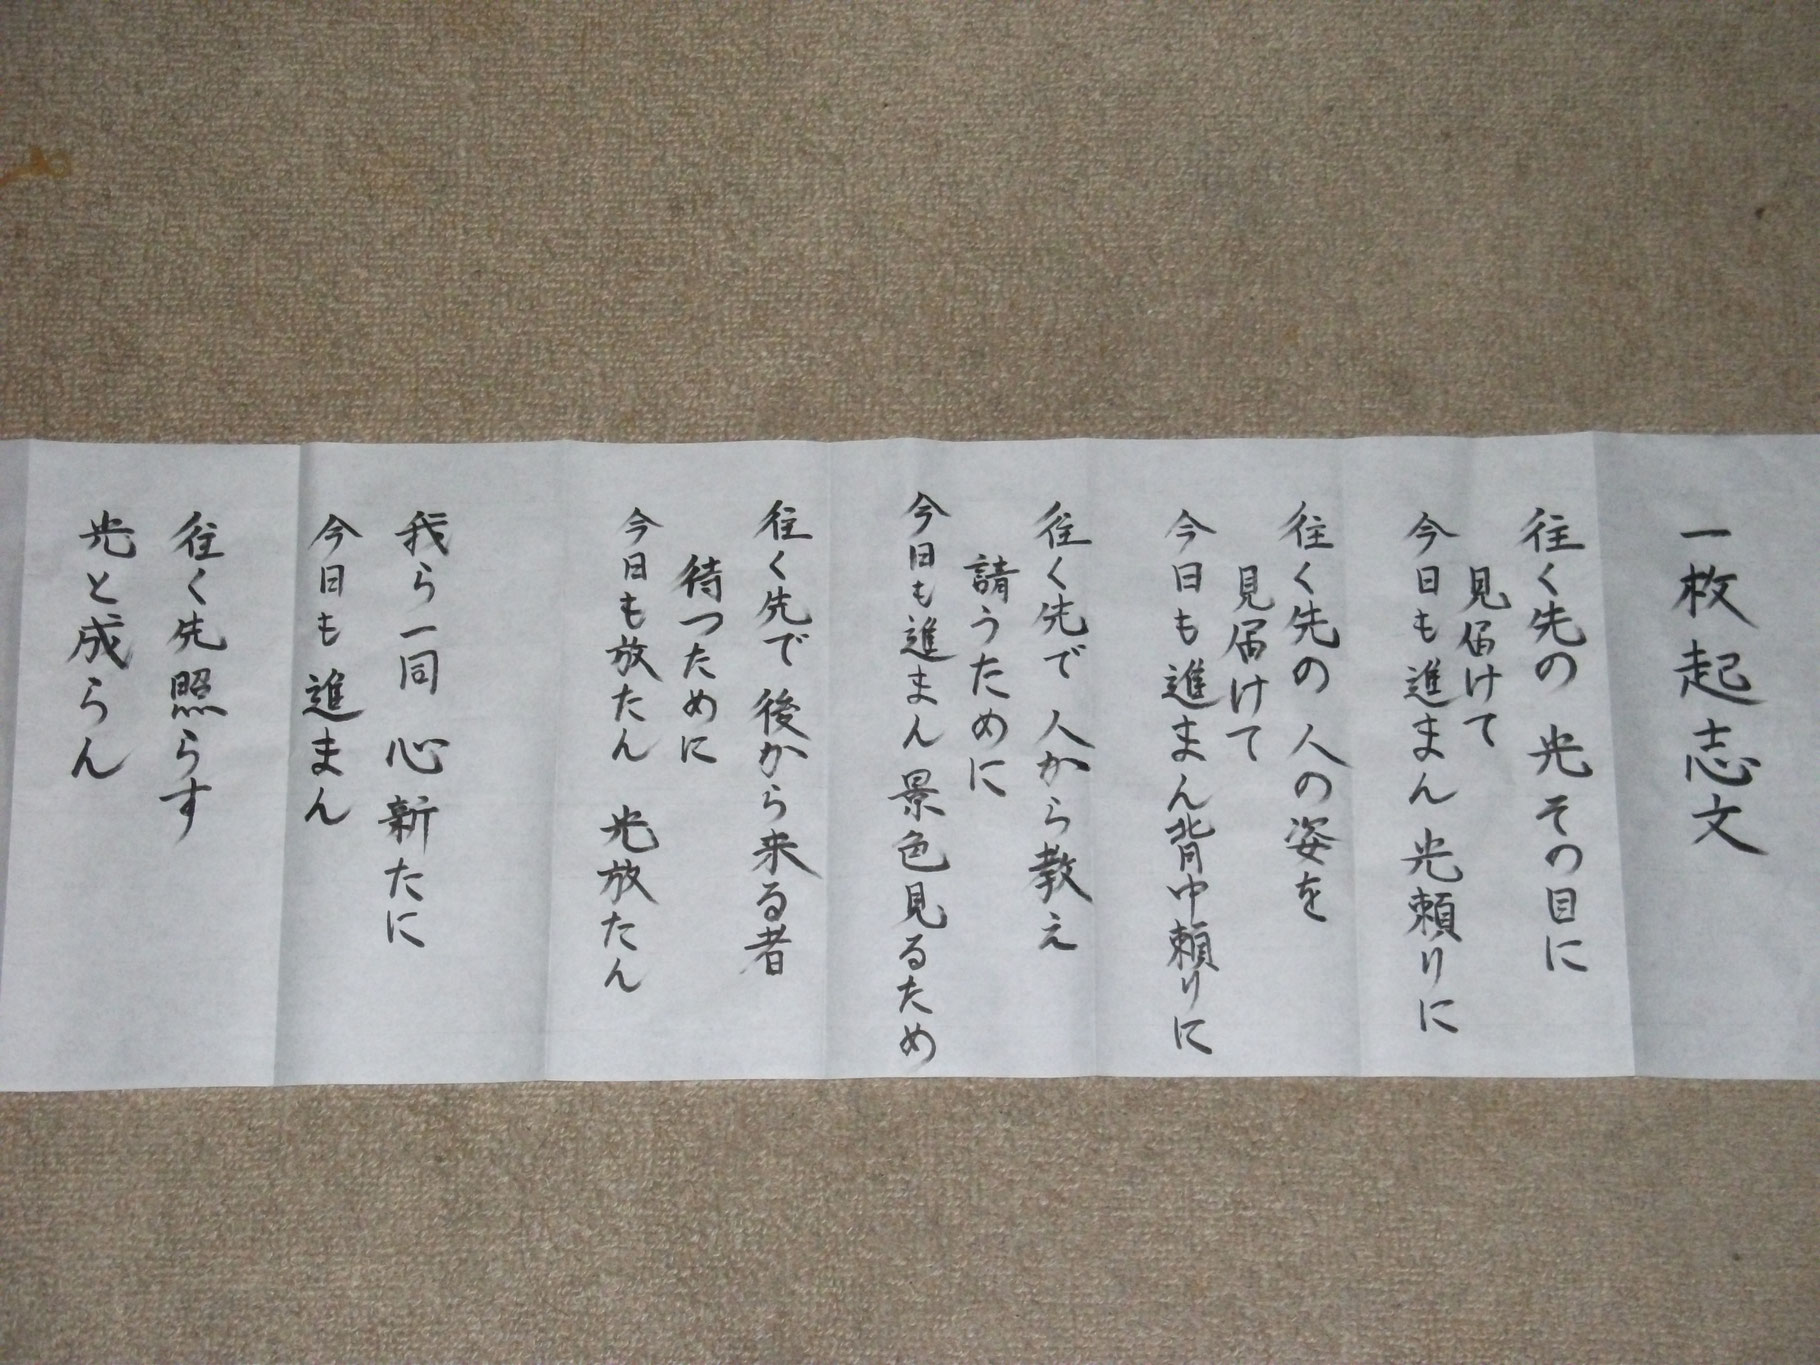 一枚起志文
往く先の 光その目に
見届けて
今日も進まん 光頼りに
往く先の 人の姿を
見届けて
今日も進まん 背中頼りに
往く先で 人から教え
請うために
今日も進まん 景色見るため
往く先で 後から来る者
待つために
今日も放たん 光放たん
我ら一同 心新たに
今日も進まん
往く先照らす
光と成らん